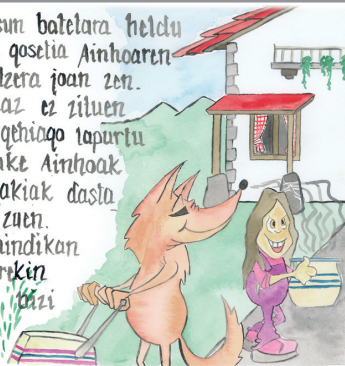 sun batetara heldu
gosetia Ainhoaren
tzera joan zen.
az ez zituen
gehiago lapurtu
nke Ainhoak
akiak dasta
zuen.
aindikan
rekin
bizi